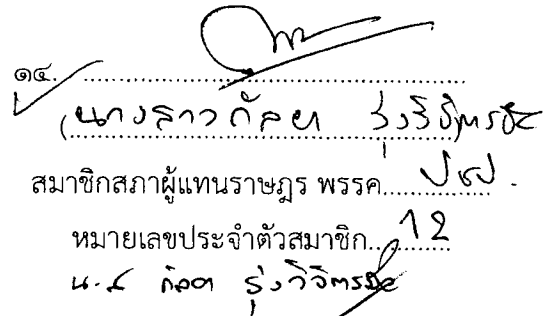 ๑๔. ..........
(นางสาวกัลยา รุ่งวิจิตรชัย)
สมาชิกสภาผู้แทนราษฎร พรรค ปชป.
หมายเลขประจำตัวสมาชิก 12
น.ส กัลยา รุ่งวิจิตรชัย